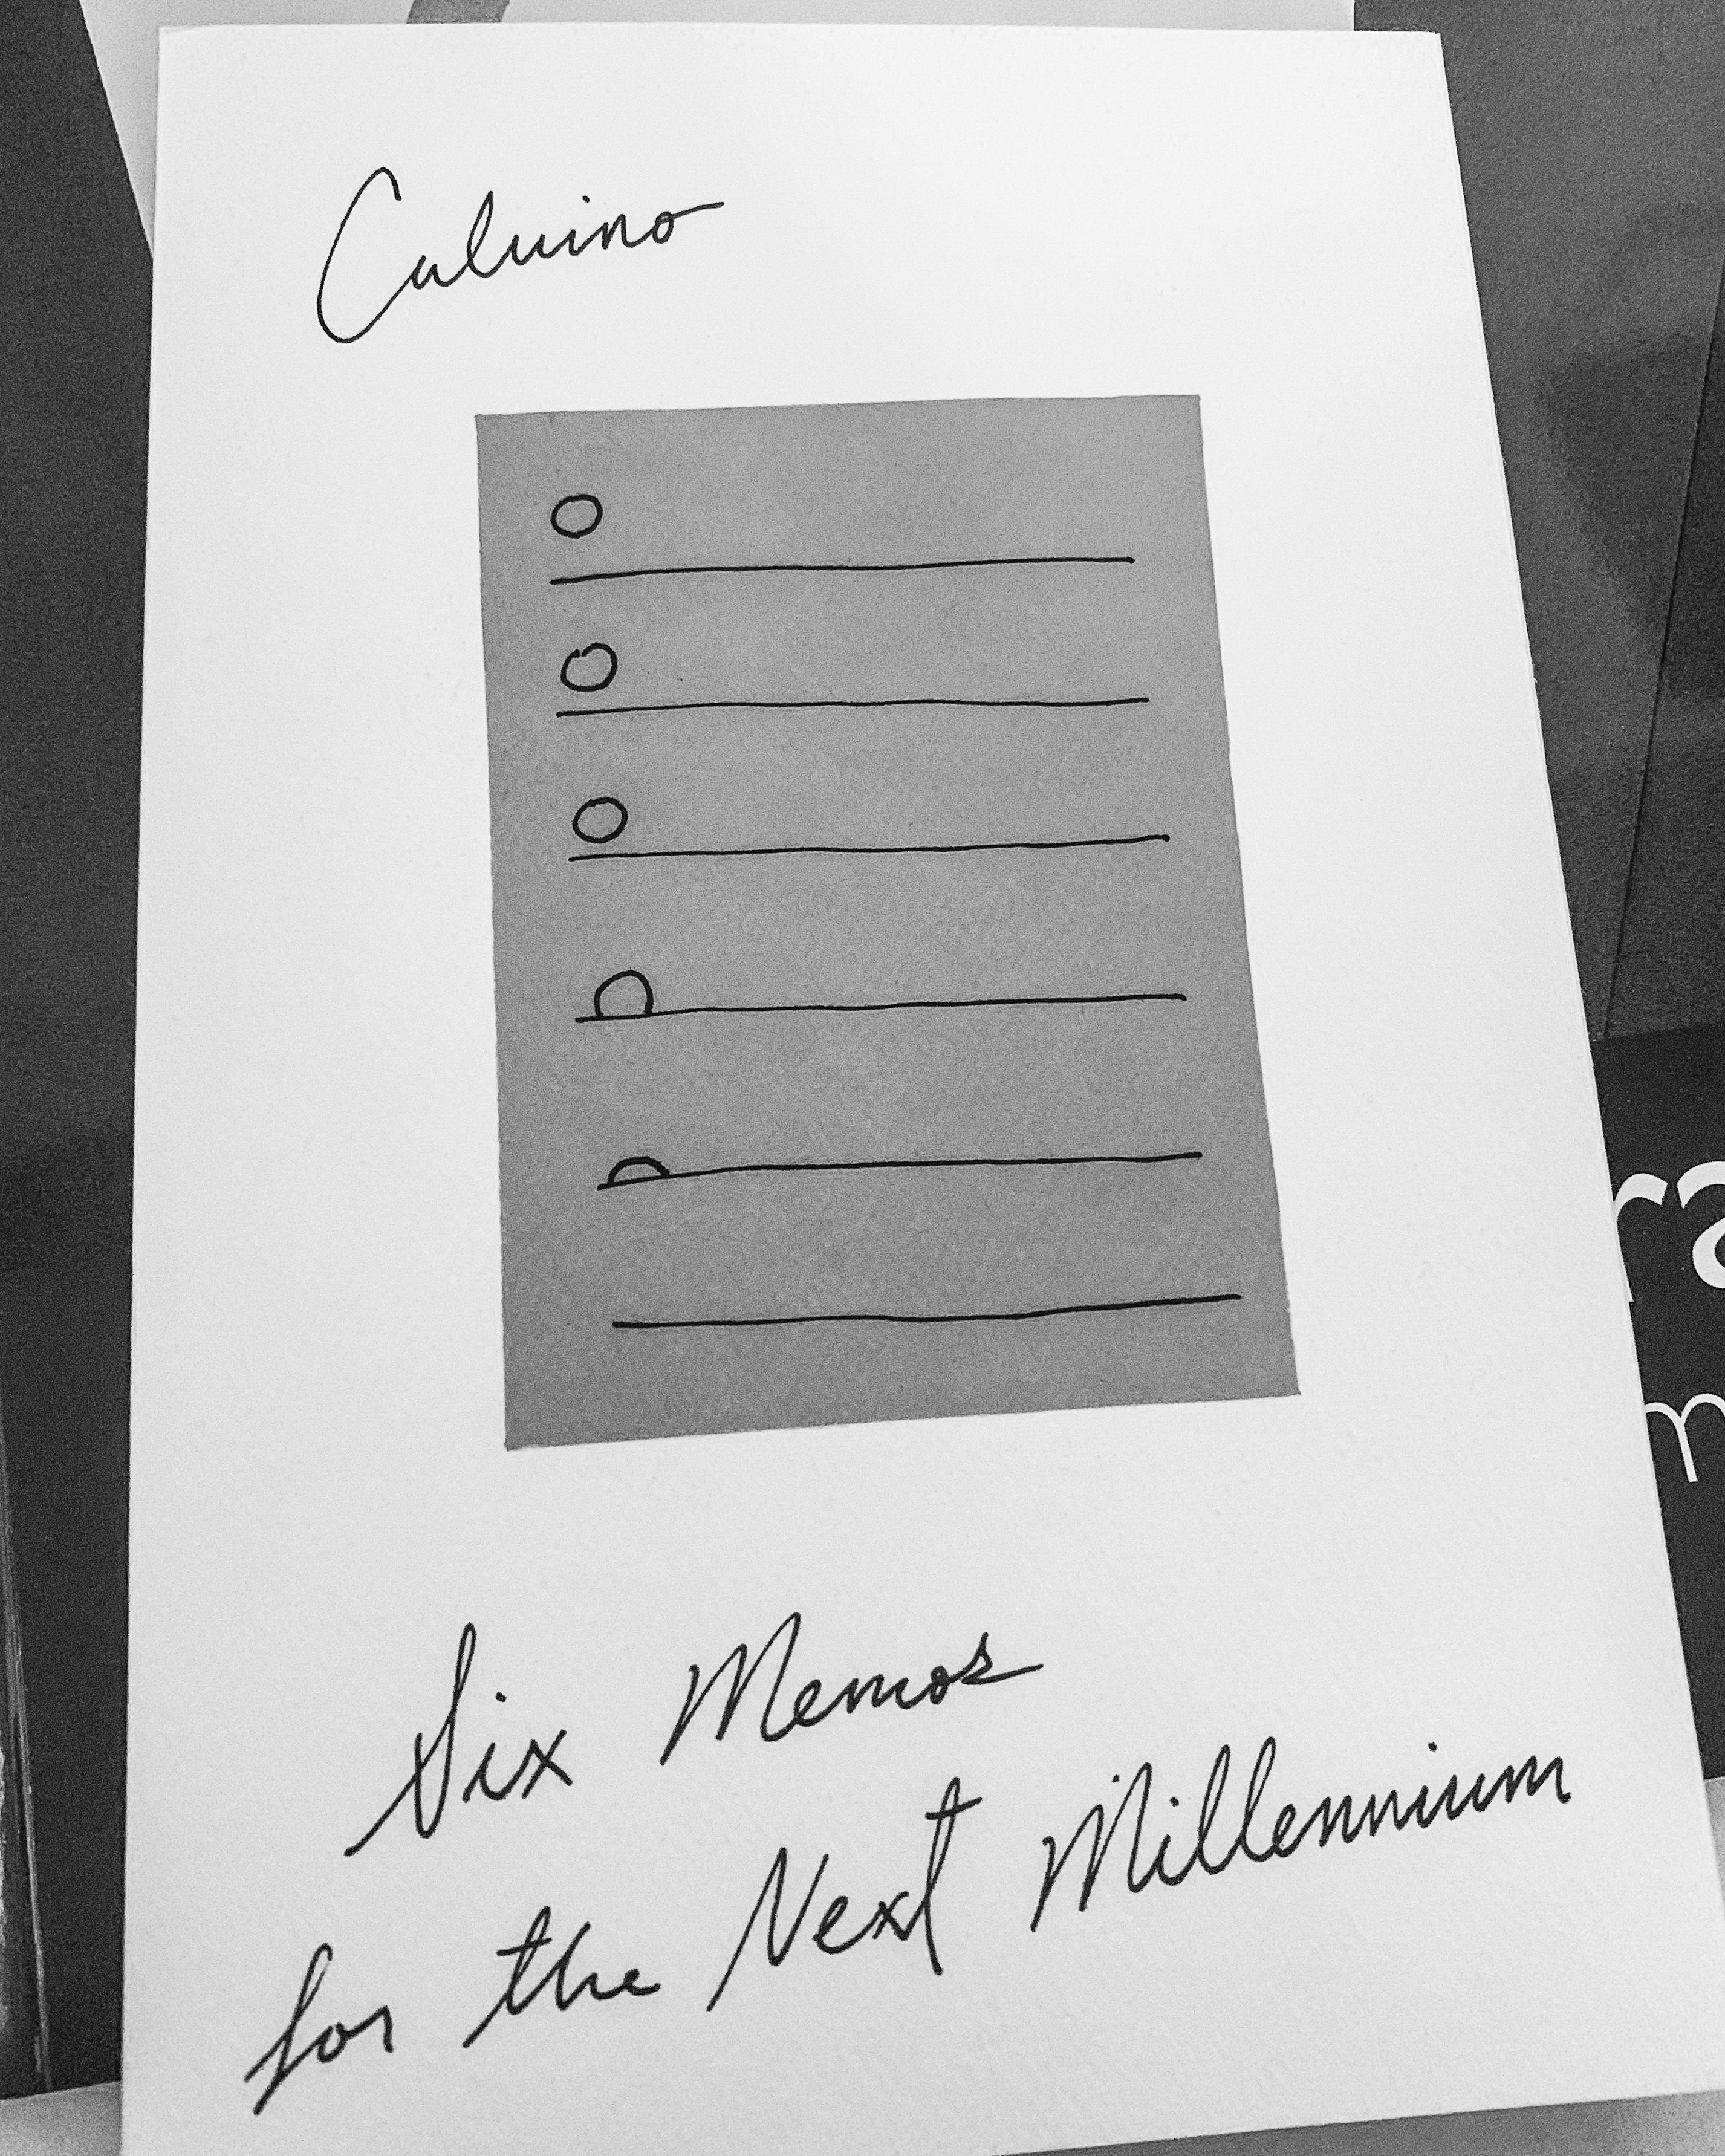 Calvino
Six Memos
for the Next Millennium
ra
m